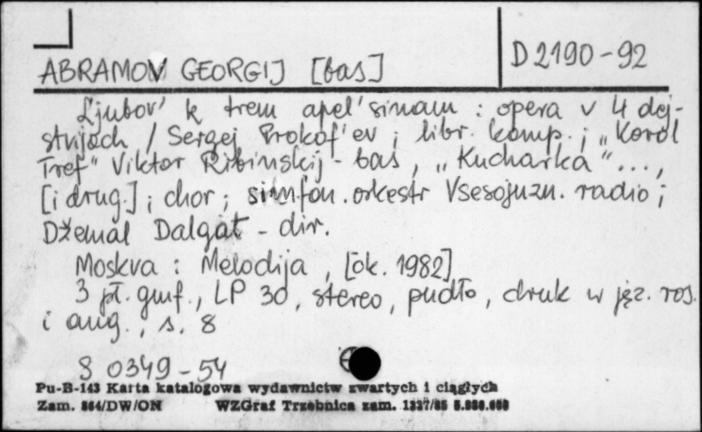 D 2190-92
ABRAMOV GEORGIJ [bas]
Ljubov' k trem apel'sinam : opera v 4 dej-
stvijach / Sergej Prokof'ev ; libr. komp. ; „Korol
Tref" Viktor Ribinskij - bas, „Kucharka"...,
[i drug.] ; chor ; simfon. orkestr Vsesojuzn. radio ;
Džemal Dalgat - dir.
Moskva : Melodija, [ok. 1982]
3 pł. gmf., LP 30, stereo, pudło, druk w jęz. ros.
i ang., s. 8
S 0349-54
Pu-B-143 Karta katalogowa wydawnictw zwartych i ciągłych
Zam. 864/DW/ON WZGraf Trzebnica zam. 1337/85